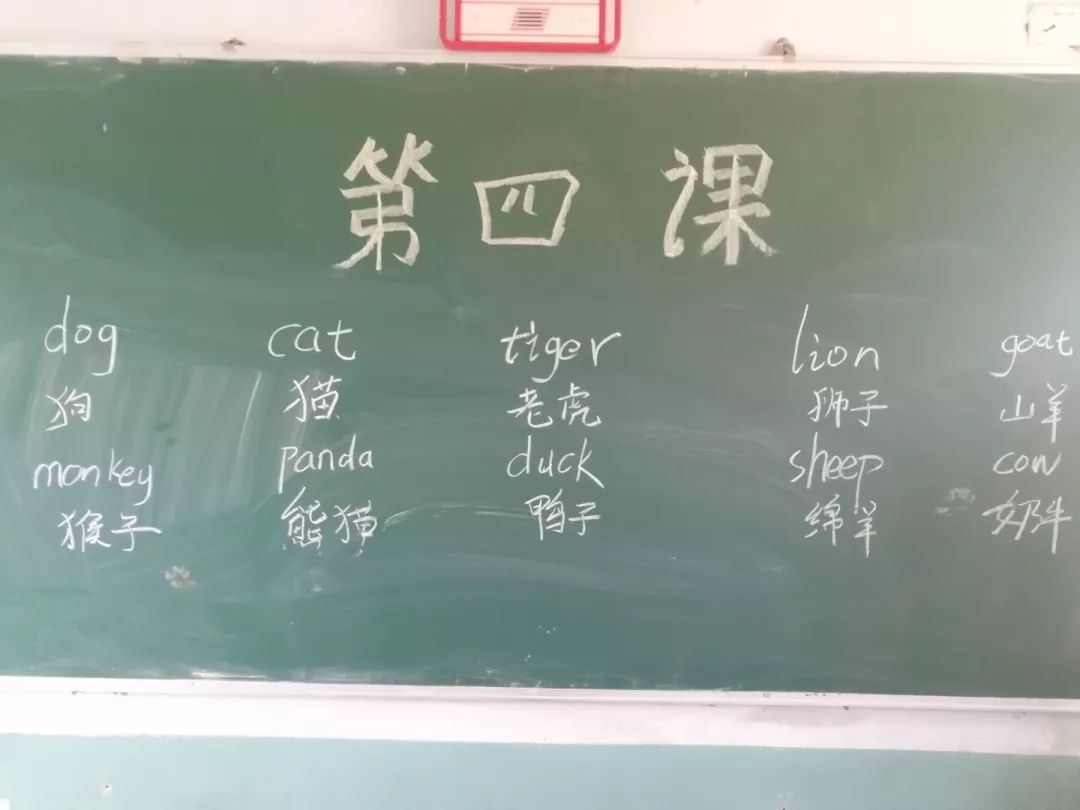 第四课
dog cat tiger lion goat
狗 猫 老虎 狮子 山羊
monkey panda duck sheep cow
猴子 熊猫 鸭子 绵羊 奶牛